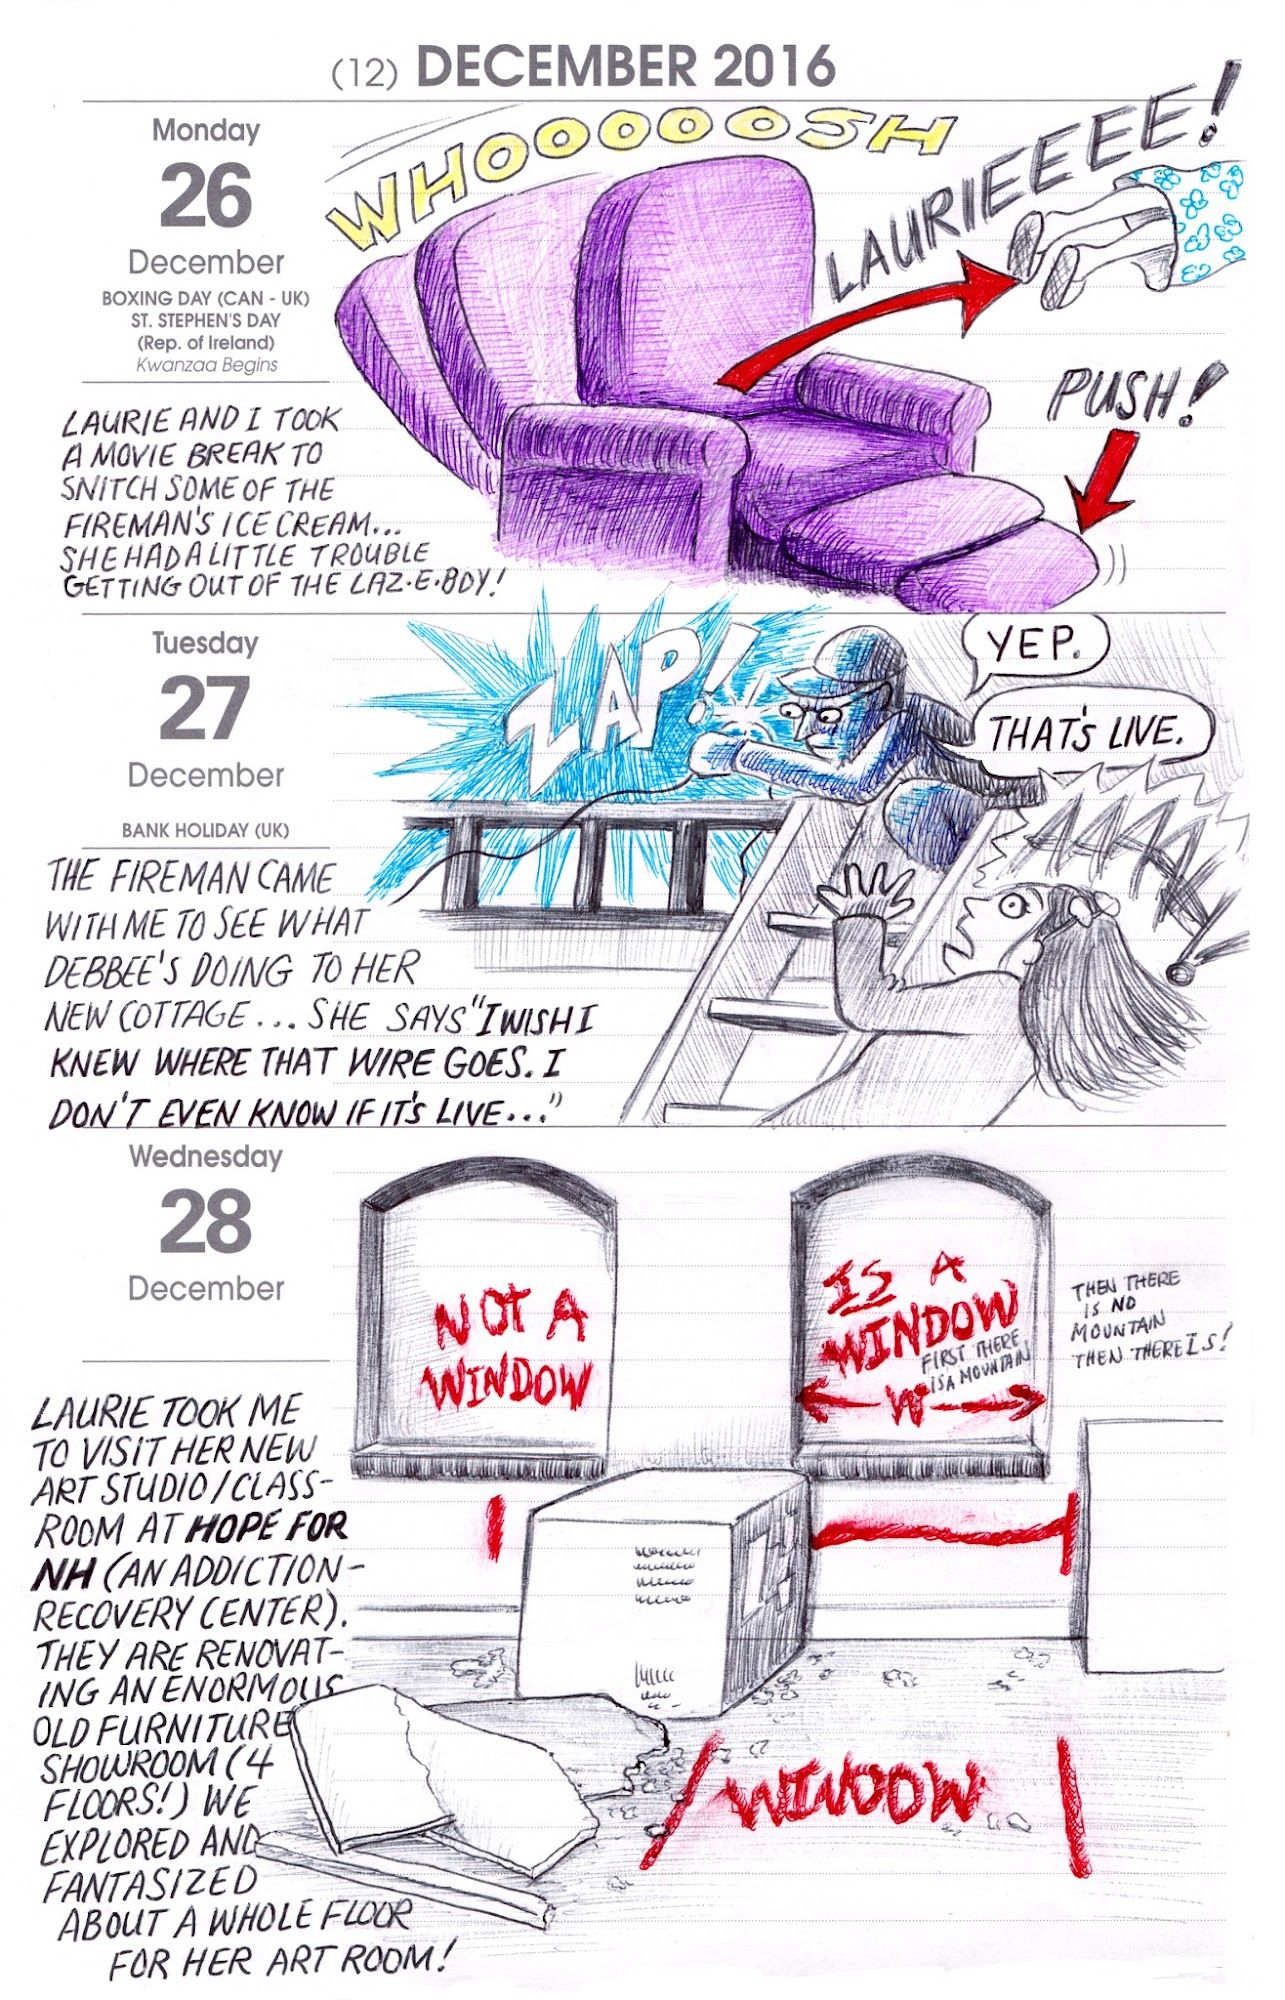 (12) DECEMBER 2016
Monday
26
December
BOXING DAY (CAN - UK)
ST. STEPHEN'S DAY
(Rep. of Ireland)
Kwanzaa Begins
WHOOOOOSH
LAURIEEEEE!
PUSH!
LAURIE AND I TOOK
A MOVIE BREAK TO
SNITCH SOME OF THE
FIREMAN'S ICE CREAM...
SHE HAD A LITTLE TROUBLE
GETTING OUT OF THE LAZ•E•BOY!
Tuesday
27
December
BANK HOLIDAY (UK)
ZAP!
YEP.
THAT'S LIVE.
THE FIREMAN CAME
WITH ME TO SEE WHAT
DEBBEE'S DOING TO HER
NEW COTTAGE... SHE SAYS "I WISH I
KNEW WHERE THAT WIRE GOES. I
DON'T EVEN KNOW IF IT'S LIVE..."
Wednesday
28
December
NOT A
WINDOW
IS A
WINDOW
FIRST THERE
IS A MOUNTAIN
W
THEN THERE
IS NO
MOUNTAIN
THEN THERE IS!
WINDOW
LAURIE TOOK ME
TO VISIT HER NEW
ART STUDIO/CLASS-
ROOM AT HOPE FOR
NH (AN ADDICTION-
RECOVERY CENTER).
THEY ARE RENOVAT-
ING AN ENORMOUS
OLD FURNITURE
SHOWROOM (4
FLOORS!) WE
EXPLORED AND
FANTASIZED
ABOUT A WHOLE FLOOR
FOR HER ART ROOM!